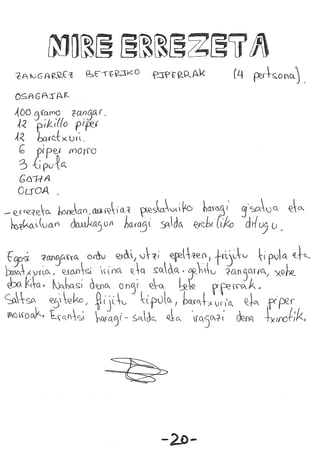 NIRE ERREZETA
ZANGARREZ BETERIKO PIPERRAK (4 pertsona).
OSAGAIAK
100 gramo zangar.
12 pikillo piper
12 baratxuri.
6 piper morro
3 tipula
GATZA
OLIOA.
- errezeta honetan, aurretiaz prestaturiko haragi gisatua eta
hozkailuan daukagun haragi salda erabiliko dugu.
Egosi zangarra ordu erdi, utzi epeltzen, frijitu tipula eta
baratxuria. erantsi irina eta salda. gehitu zangarra, xehe
ebakita. Nahasi dena ongi eta bete piperrak.
Saltsa egiteko, frijitu tipula, baratxuria eta piper
morroak. Erantsi haragi-salda eta iragazi dena txinotik.
-20-